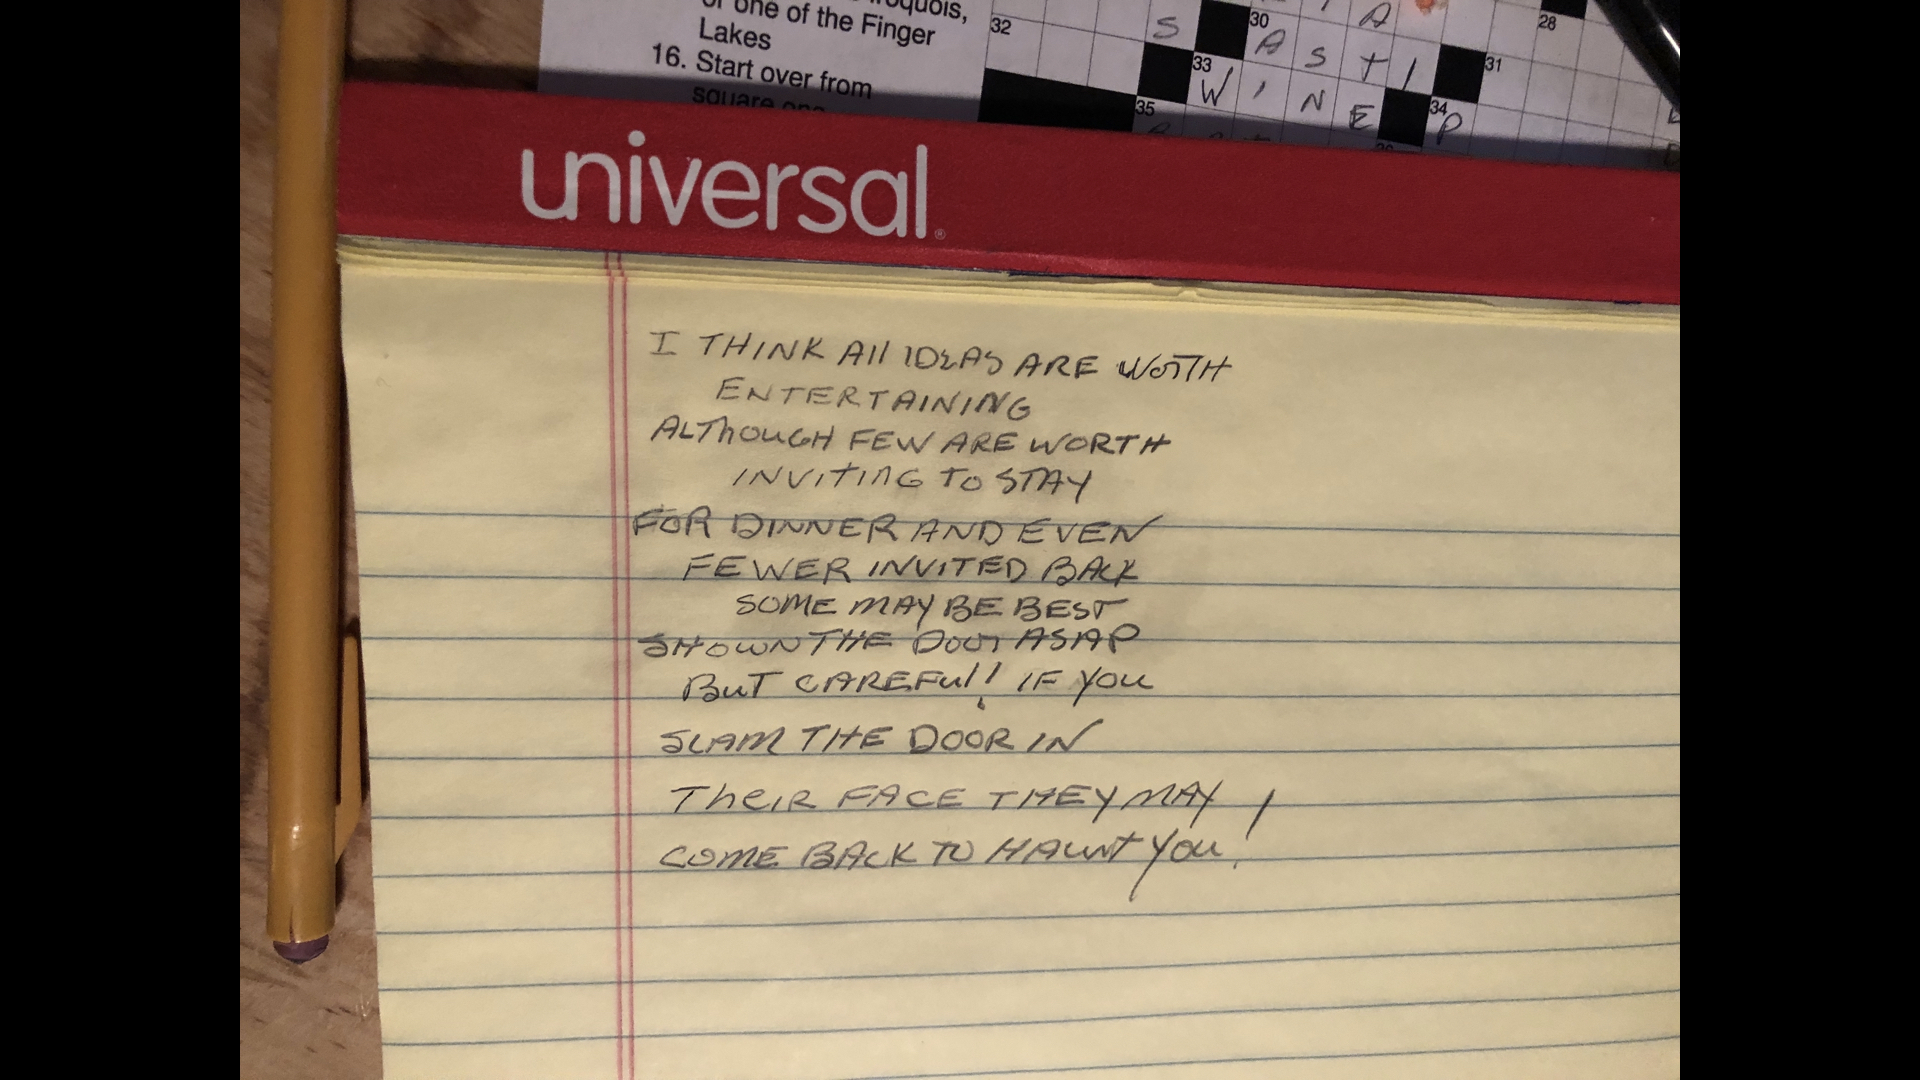 or one of the Finger
Lakes
16. Start over from
square one
32
S
30
A S T I
A
28
31
33
W I N E
34
P
35
universal®
I THINK All IDEAS ARE WORTH
ENTERTAINING
ALThOUGH FEW ARE WORTH
INVITING TO STAY
FOR DINNER AND EVEN
FEWER INVITED BACK
SOME MAY BE BEST
SHOWN THE Door ASAP
BuT CAREFul! IF YOU
SLAM THE DOOR IN
TheIR FACE THEY MAY
COME BACK TO HAUNT YOU!